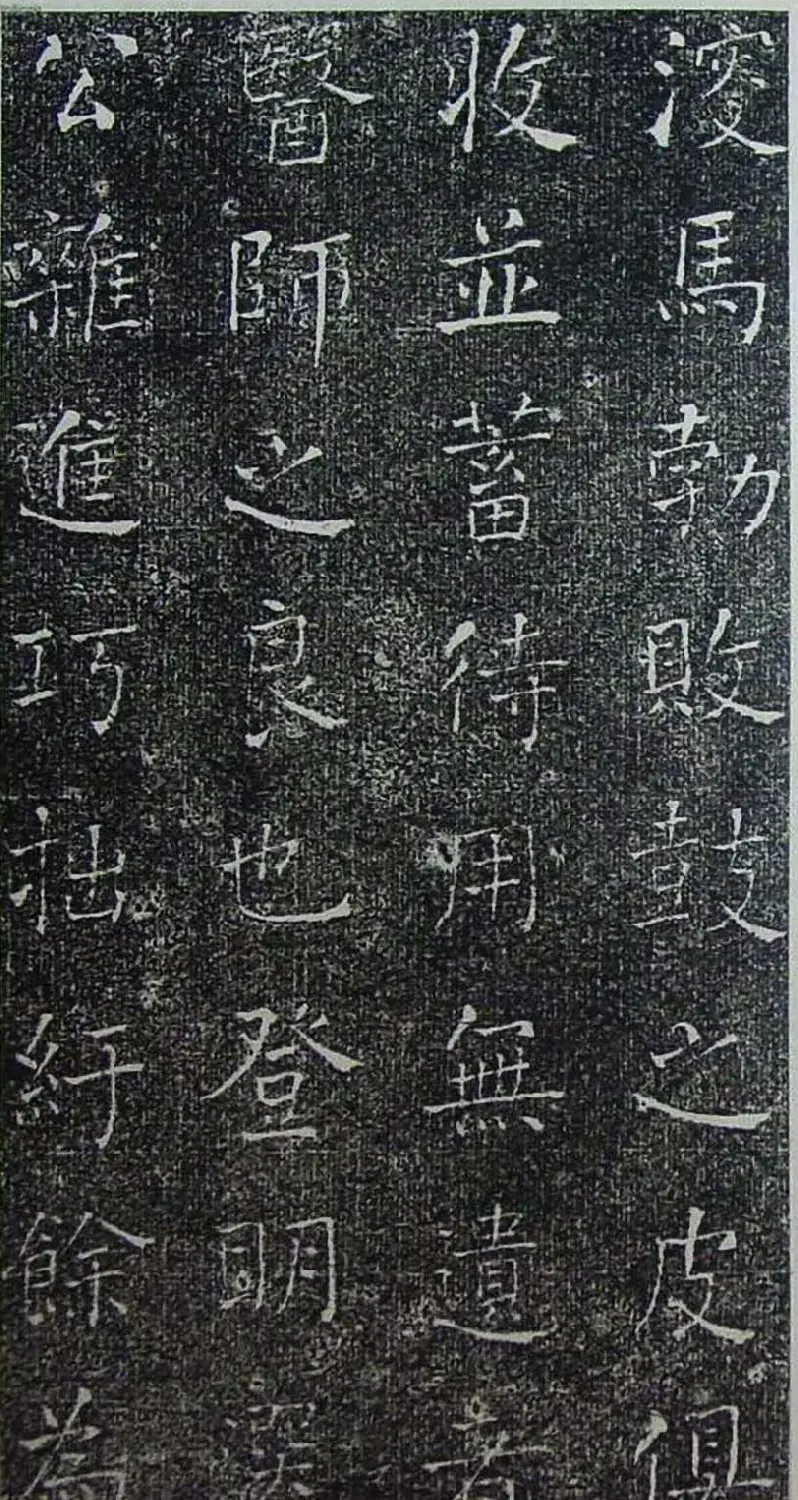 溲馬勃敗鼓之皮俱
收並蓄待用無遺者
醫師之良也登眀選
公雜進巧拙紆餘為